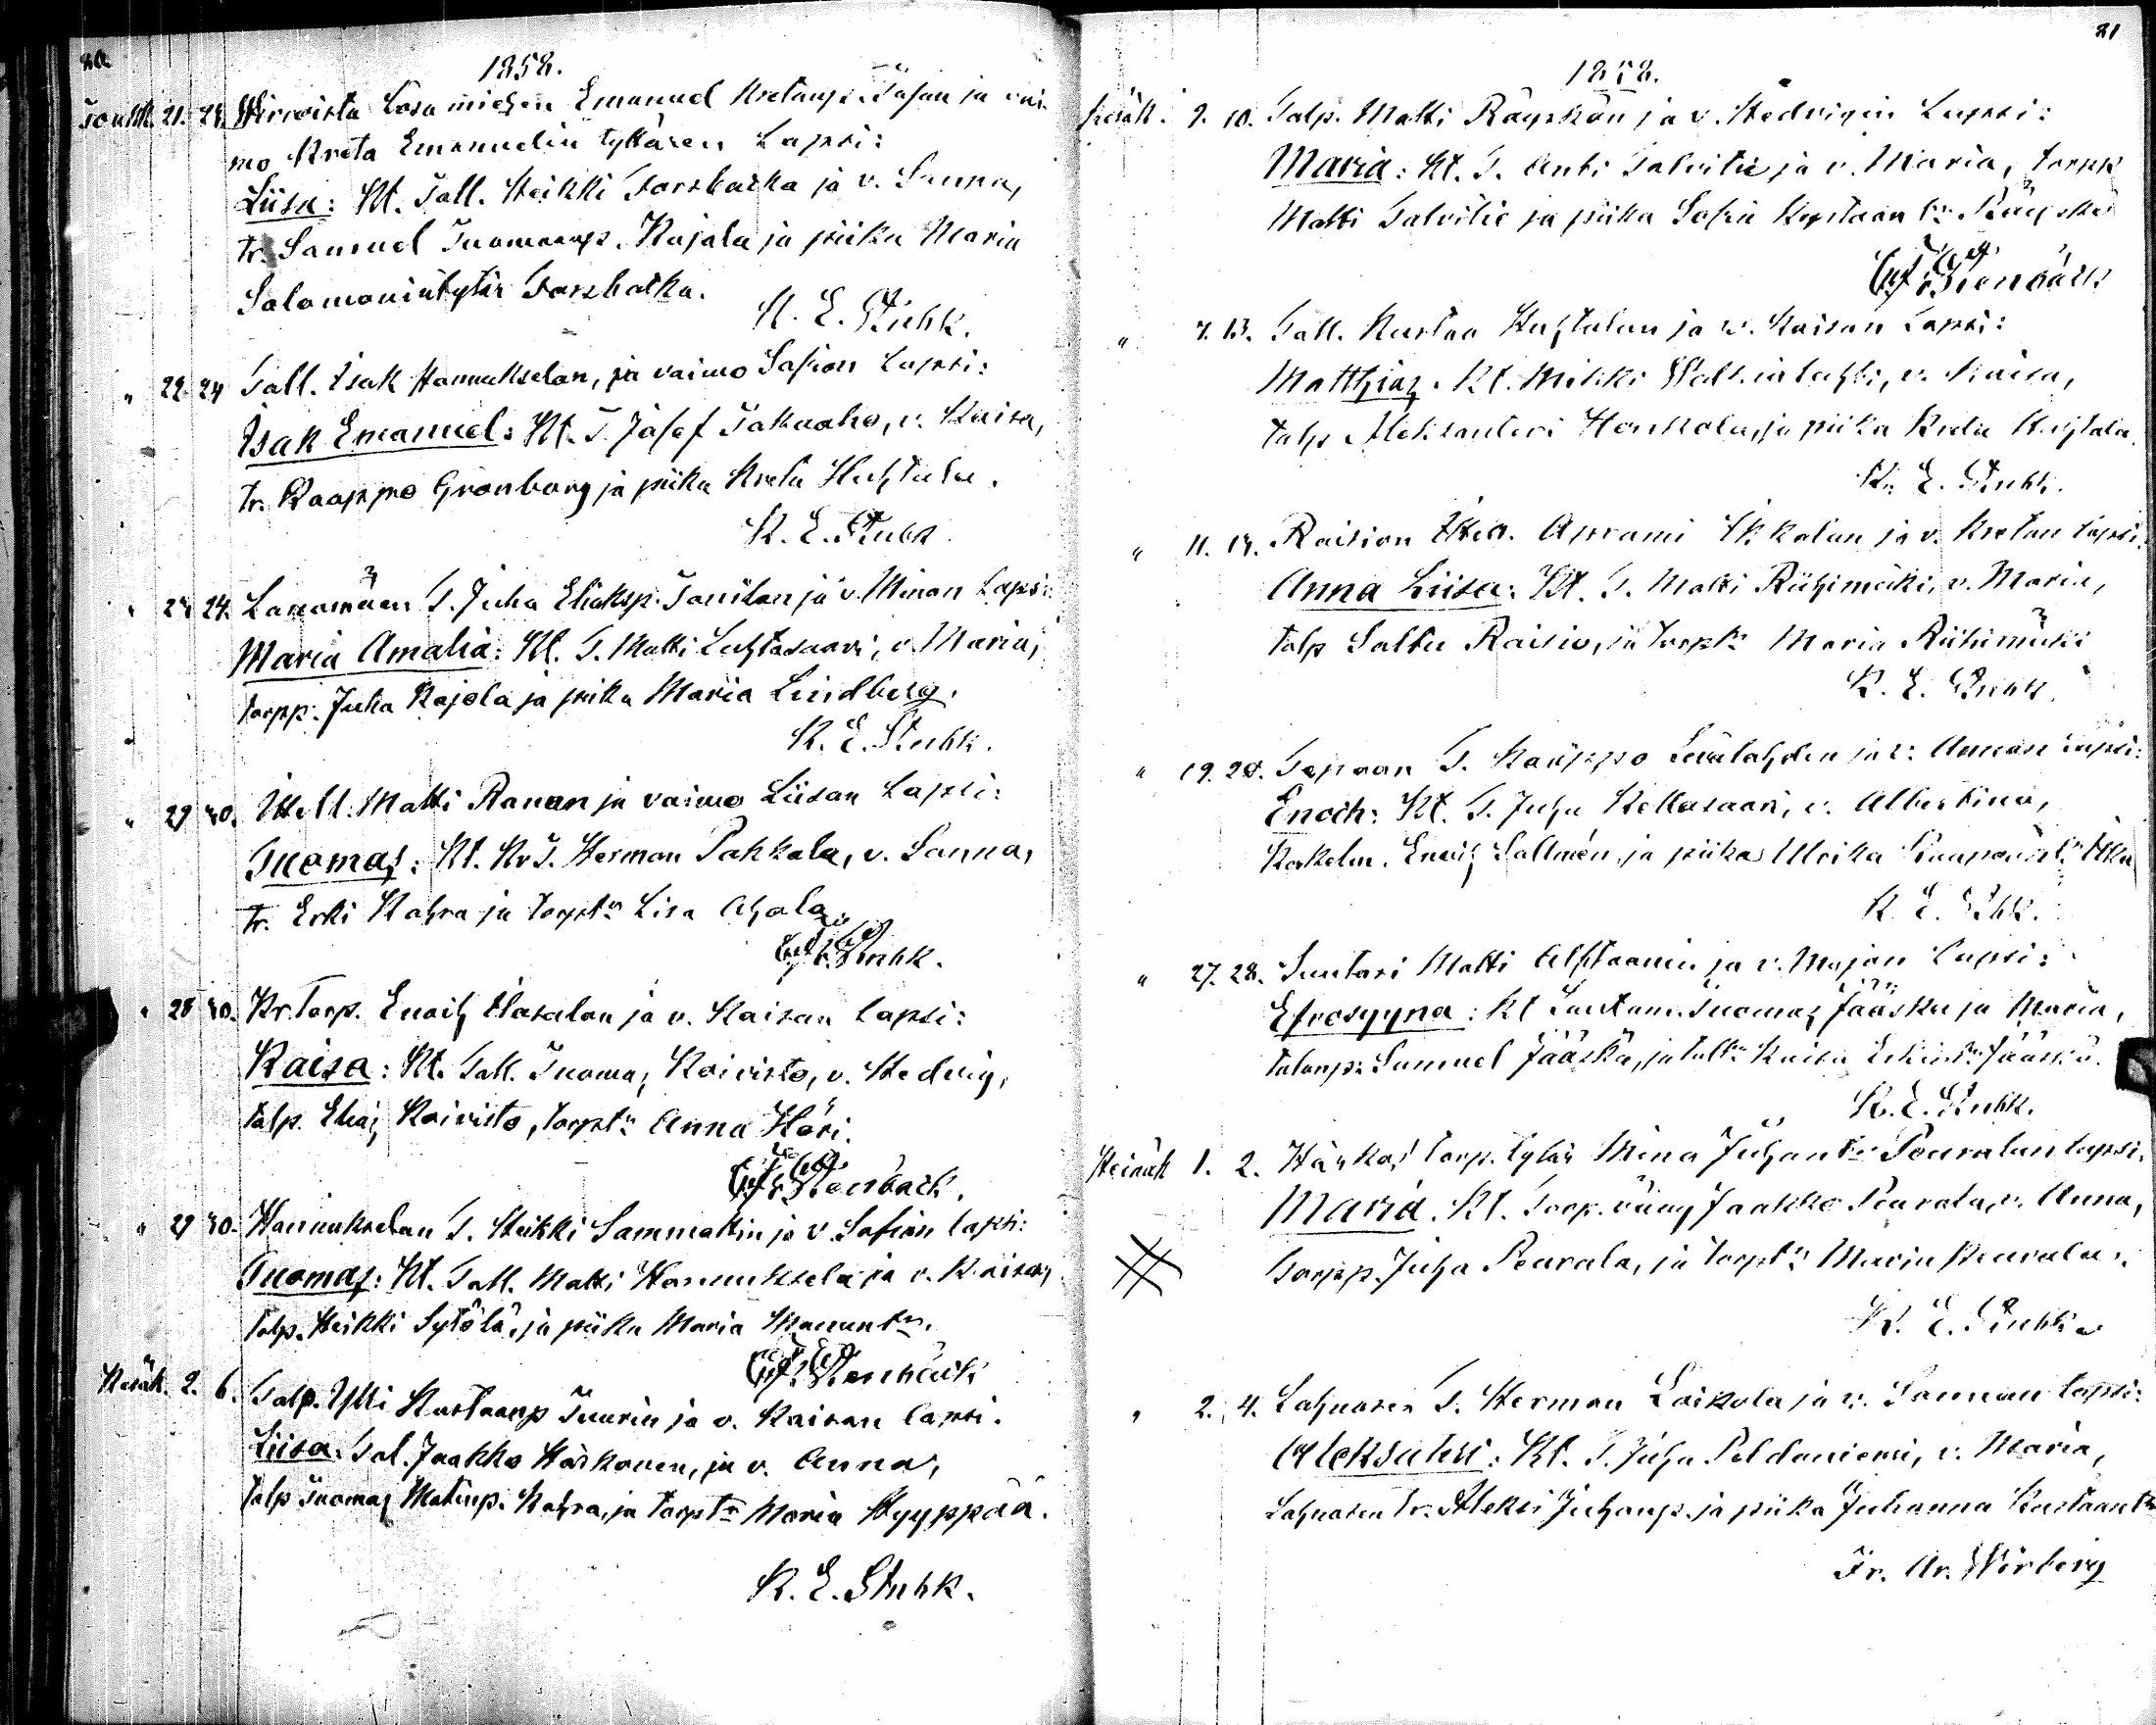 80
1858.
Toukk. 21. 24. Wirroista Losumiehen Emanuel Kretanp. Tåfan ja vai-
mo Kreta Emanuelin tyttären Lapsi:
Liisa: Kt. Tall. Heikki Forsbacka ja v. Sanna,
tr. Samuel Tuomaanp. Kajala ja piika Maria
Salomonintytär Forsbacka.
K. E. Stubb.
" 22. 24 Tall. Isak Hannukselan, ja vaimo Sofian Lapsi:
Isak Emanuel: Kt. T. Josef Jakuaho, v. Kaisa,
tr. Kaappo Grönborg ja piika Kreta Huhtala.
K. E. Stubb
" 24. Lanamäen T. Juha Eliaksp. Tanilan ja v. Minan Lapsi:
Maria Amalia: Kt. T. Matti Luhtasaari, v. Maria,
torpp. Juha Kajola ja piika Maria Lindberg.
K. E. Stubb.
" 29 30. Itell. Matti Ranan ja vaimo Liisan Lapsi:
Tuomas: Kt. Kr. T. Herman Pahkala, v. Sanna,
tr. Erki Kahra ja torptr Lisa Ahola.
Stubb.
" 28 30. Kr. Torp. Enoch Hasalan ja v. Kaisan lapsi:
Kaisa: Kt. Tall. Tuomas Koivisto, v. Hedvig,
talp. Elias Koivisto, torptr Anna Höri.
Stenbäck.
" 29 30. Hannukselan T. Heikki Sammattin ja v. Sofian lapsi:
Tuomas: Kt. Tall. Matti Hannuksela ja v. Kaisa,
talp. Heikki Sytölä, ja piika Maria
Stenbäck
Kesäk. 2. 6. Talp. Ylli Kustaanp Tuurin ja v. Kaisan lapsi.
Liisa. Tal. Jaakko Härkonen, ja v. Anna,
talp Tuomas Matinp. Kahra, ja torptr Maria Hyyppää.
K. E. Stubb.
81
1858.
Kesäk. 9. 10. Talp. Matti Räyskän ja v. Hedvigin Lapsi:
Maria: Kt. T. Anti Salvitie ja v. Maria, torpp
Matti Salvitie ja piika Sofia Kustaan tr. Räyskä
Stenbäck
" 7. 13. Tall. Kustaa Huhtalan ja v. Kaisan Lapsi:
Matthias. Kt. Mikki, v. Kaisa,
talp Aleksanteri Honkola, ja piika Kreta Huhtala.
K. E. Stubb.
" 11. 14. Raision Itell. Aprami Ikkalan ja v. Kretan lapsi.
Anna Liisa: Kt. T. Matti Riihimäki, v. Maria,
talp Salku Raisio, ja torptr Maria Riihimäki
K. E. Stubb.
" 19. 20. T. Kaappo ja v. Annan lapsi:
Enoch: Kt. T. Juha Kellosaari, v. Albertina,
Enoch Sallmén, ja piika Ulrika
K. E. Stubb.
" 27. 28. Suutari Matti Alftaanin ja v. Majan Lapsi:
Efrosyyna: Kt Lautam. Tuomas Jääskä ja Maria,
talonp. Samuel Jääskä, ja talltr Kaisa Erkintr Jääskä.
K. E. Stubb.
Heinäk 1. 2. Härkos torp. tytär Mina Juhantr Peuralan lapsi.
Maria. Kt. Torp. vaari Jaakko Peurala, v. Anna,
Torpp. Juha Peurala, ja torptr Maria Peurala.
K. E. Stubb.
" 2. 4. Lahnasen T. Herman Laikola ja v. Sannan lapsi:
Aleksanteri: Kt. T. Juha Peldoniemi, v. Maria,
Lahnasen tr. Aleksi Juhanp. ja piika Juhanna Kustaantr
Fr. Ar. Wirberg